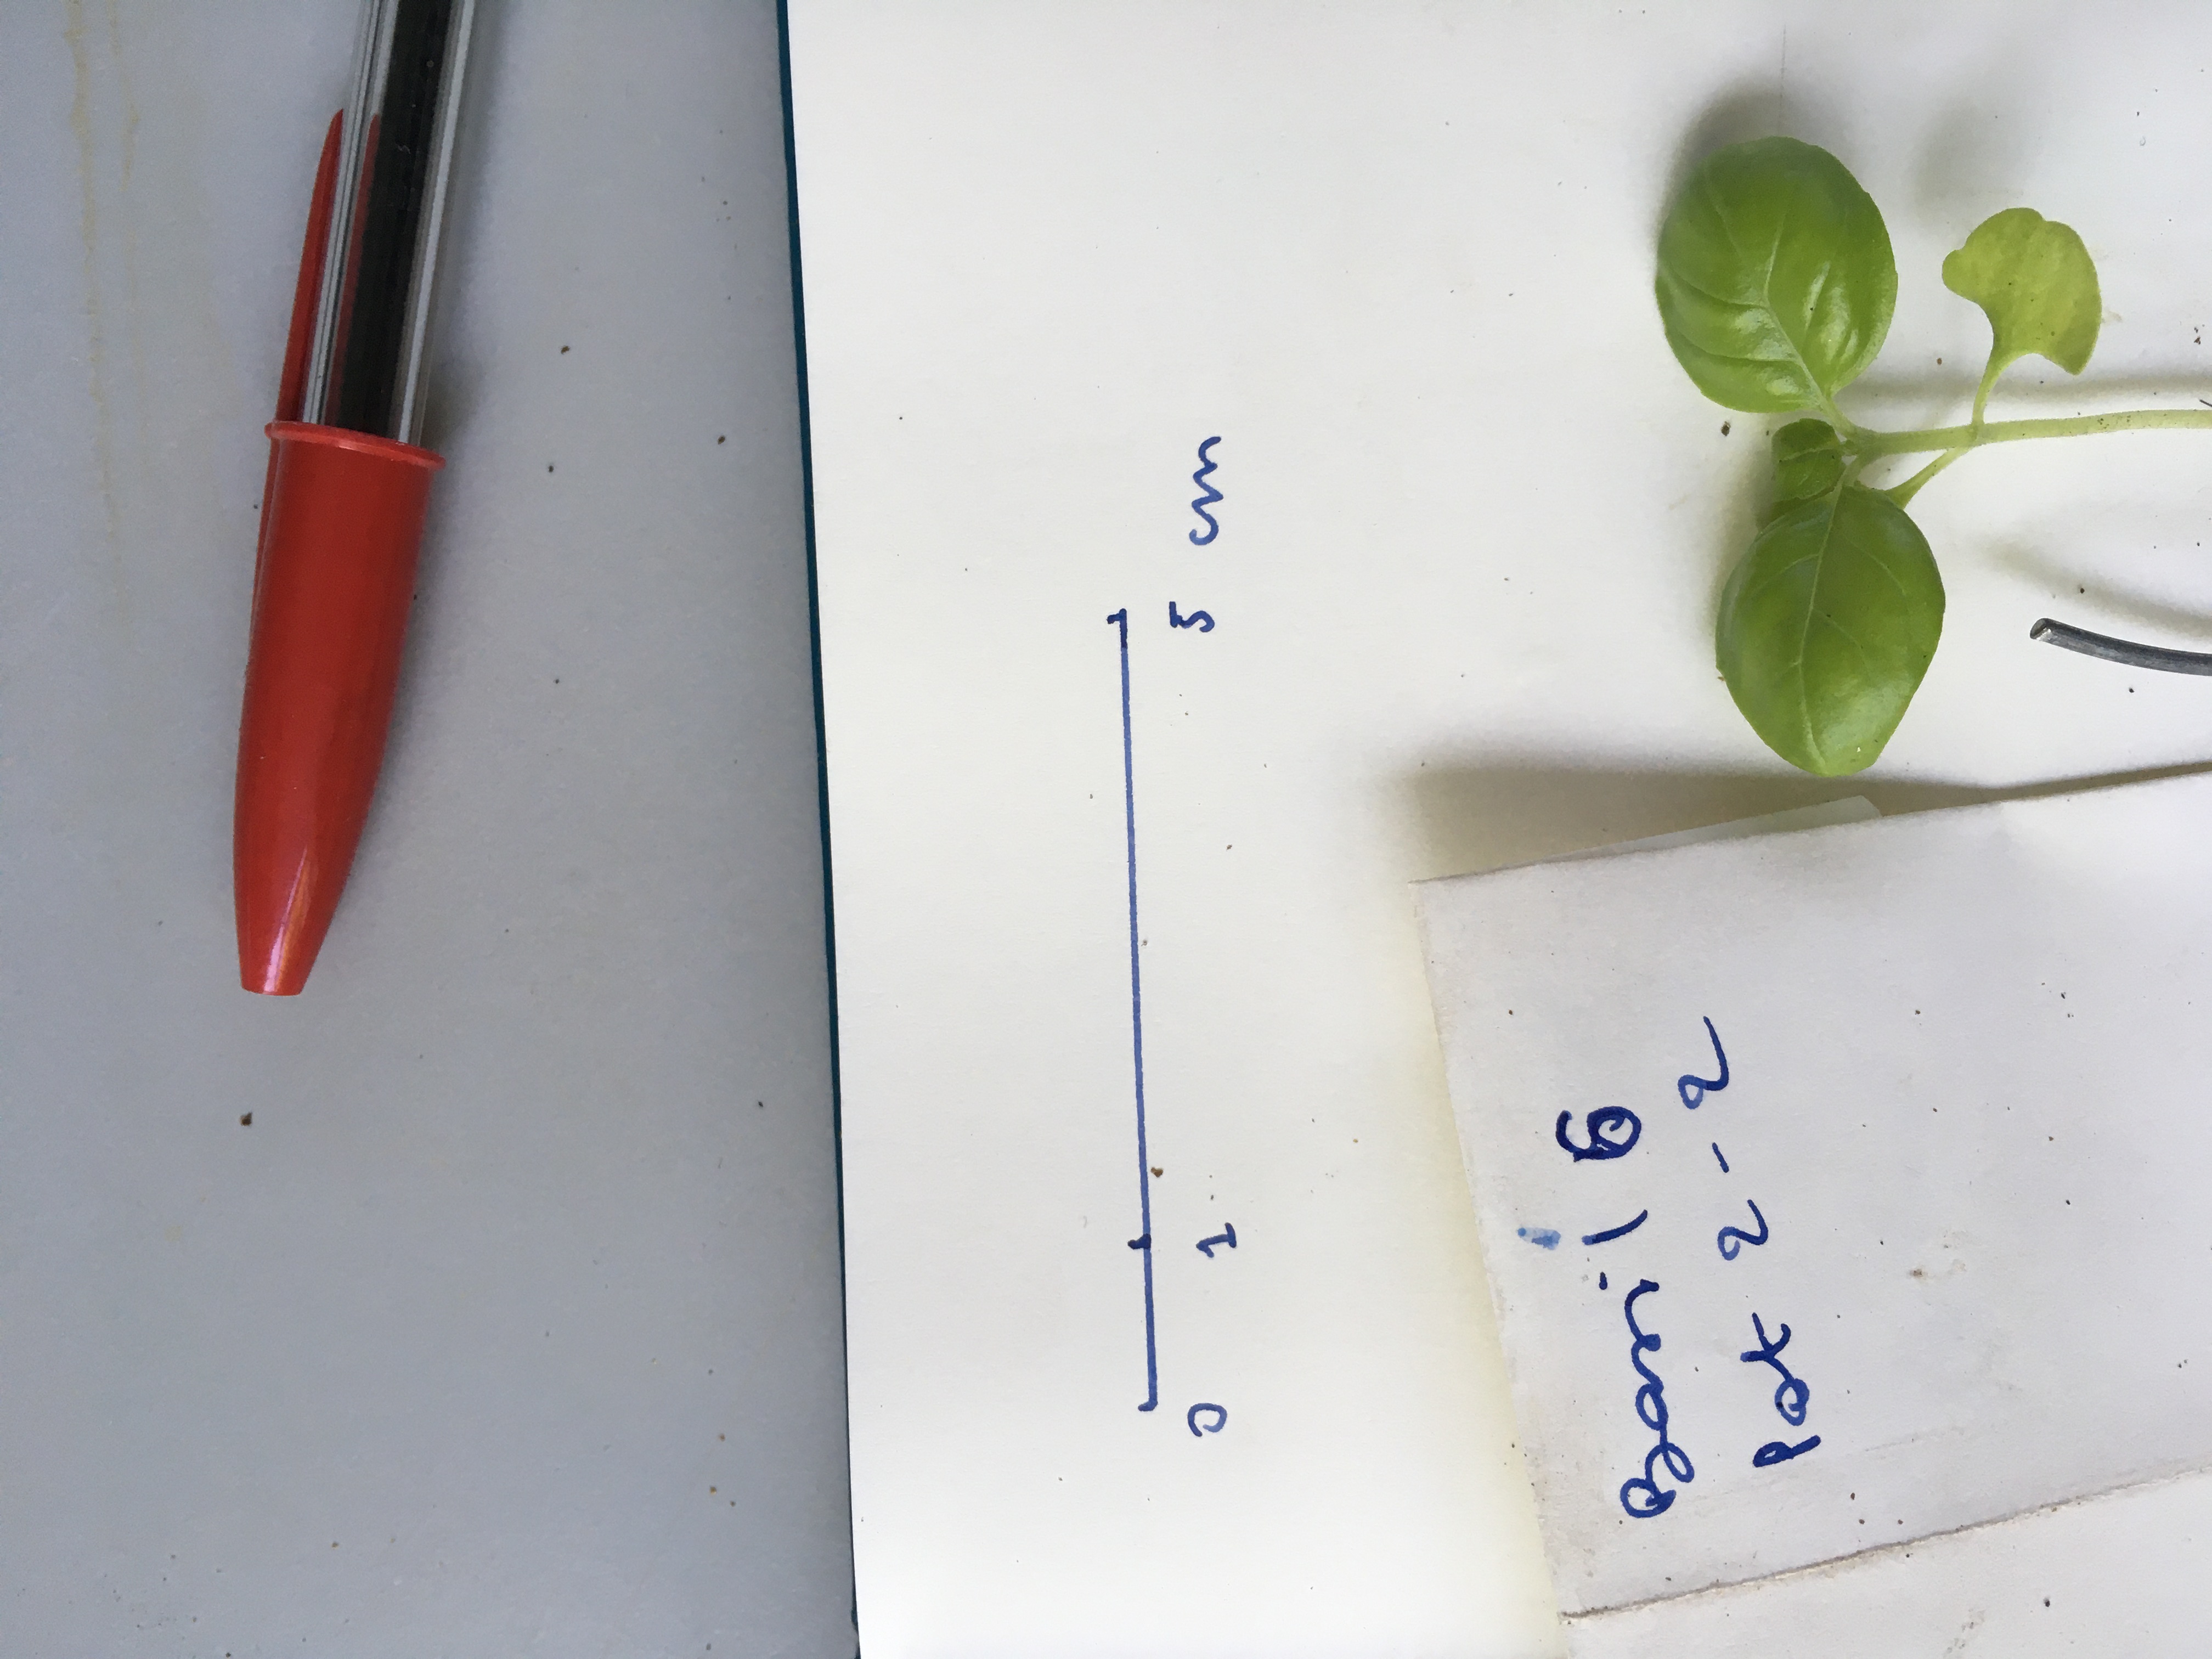 0 1 5 cm
Basil 6
Pot 2-2